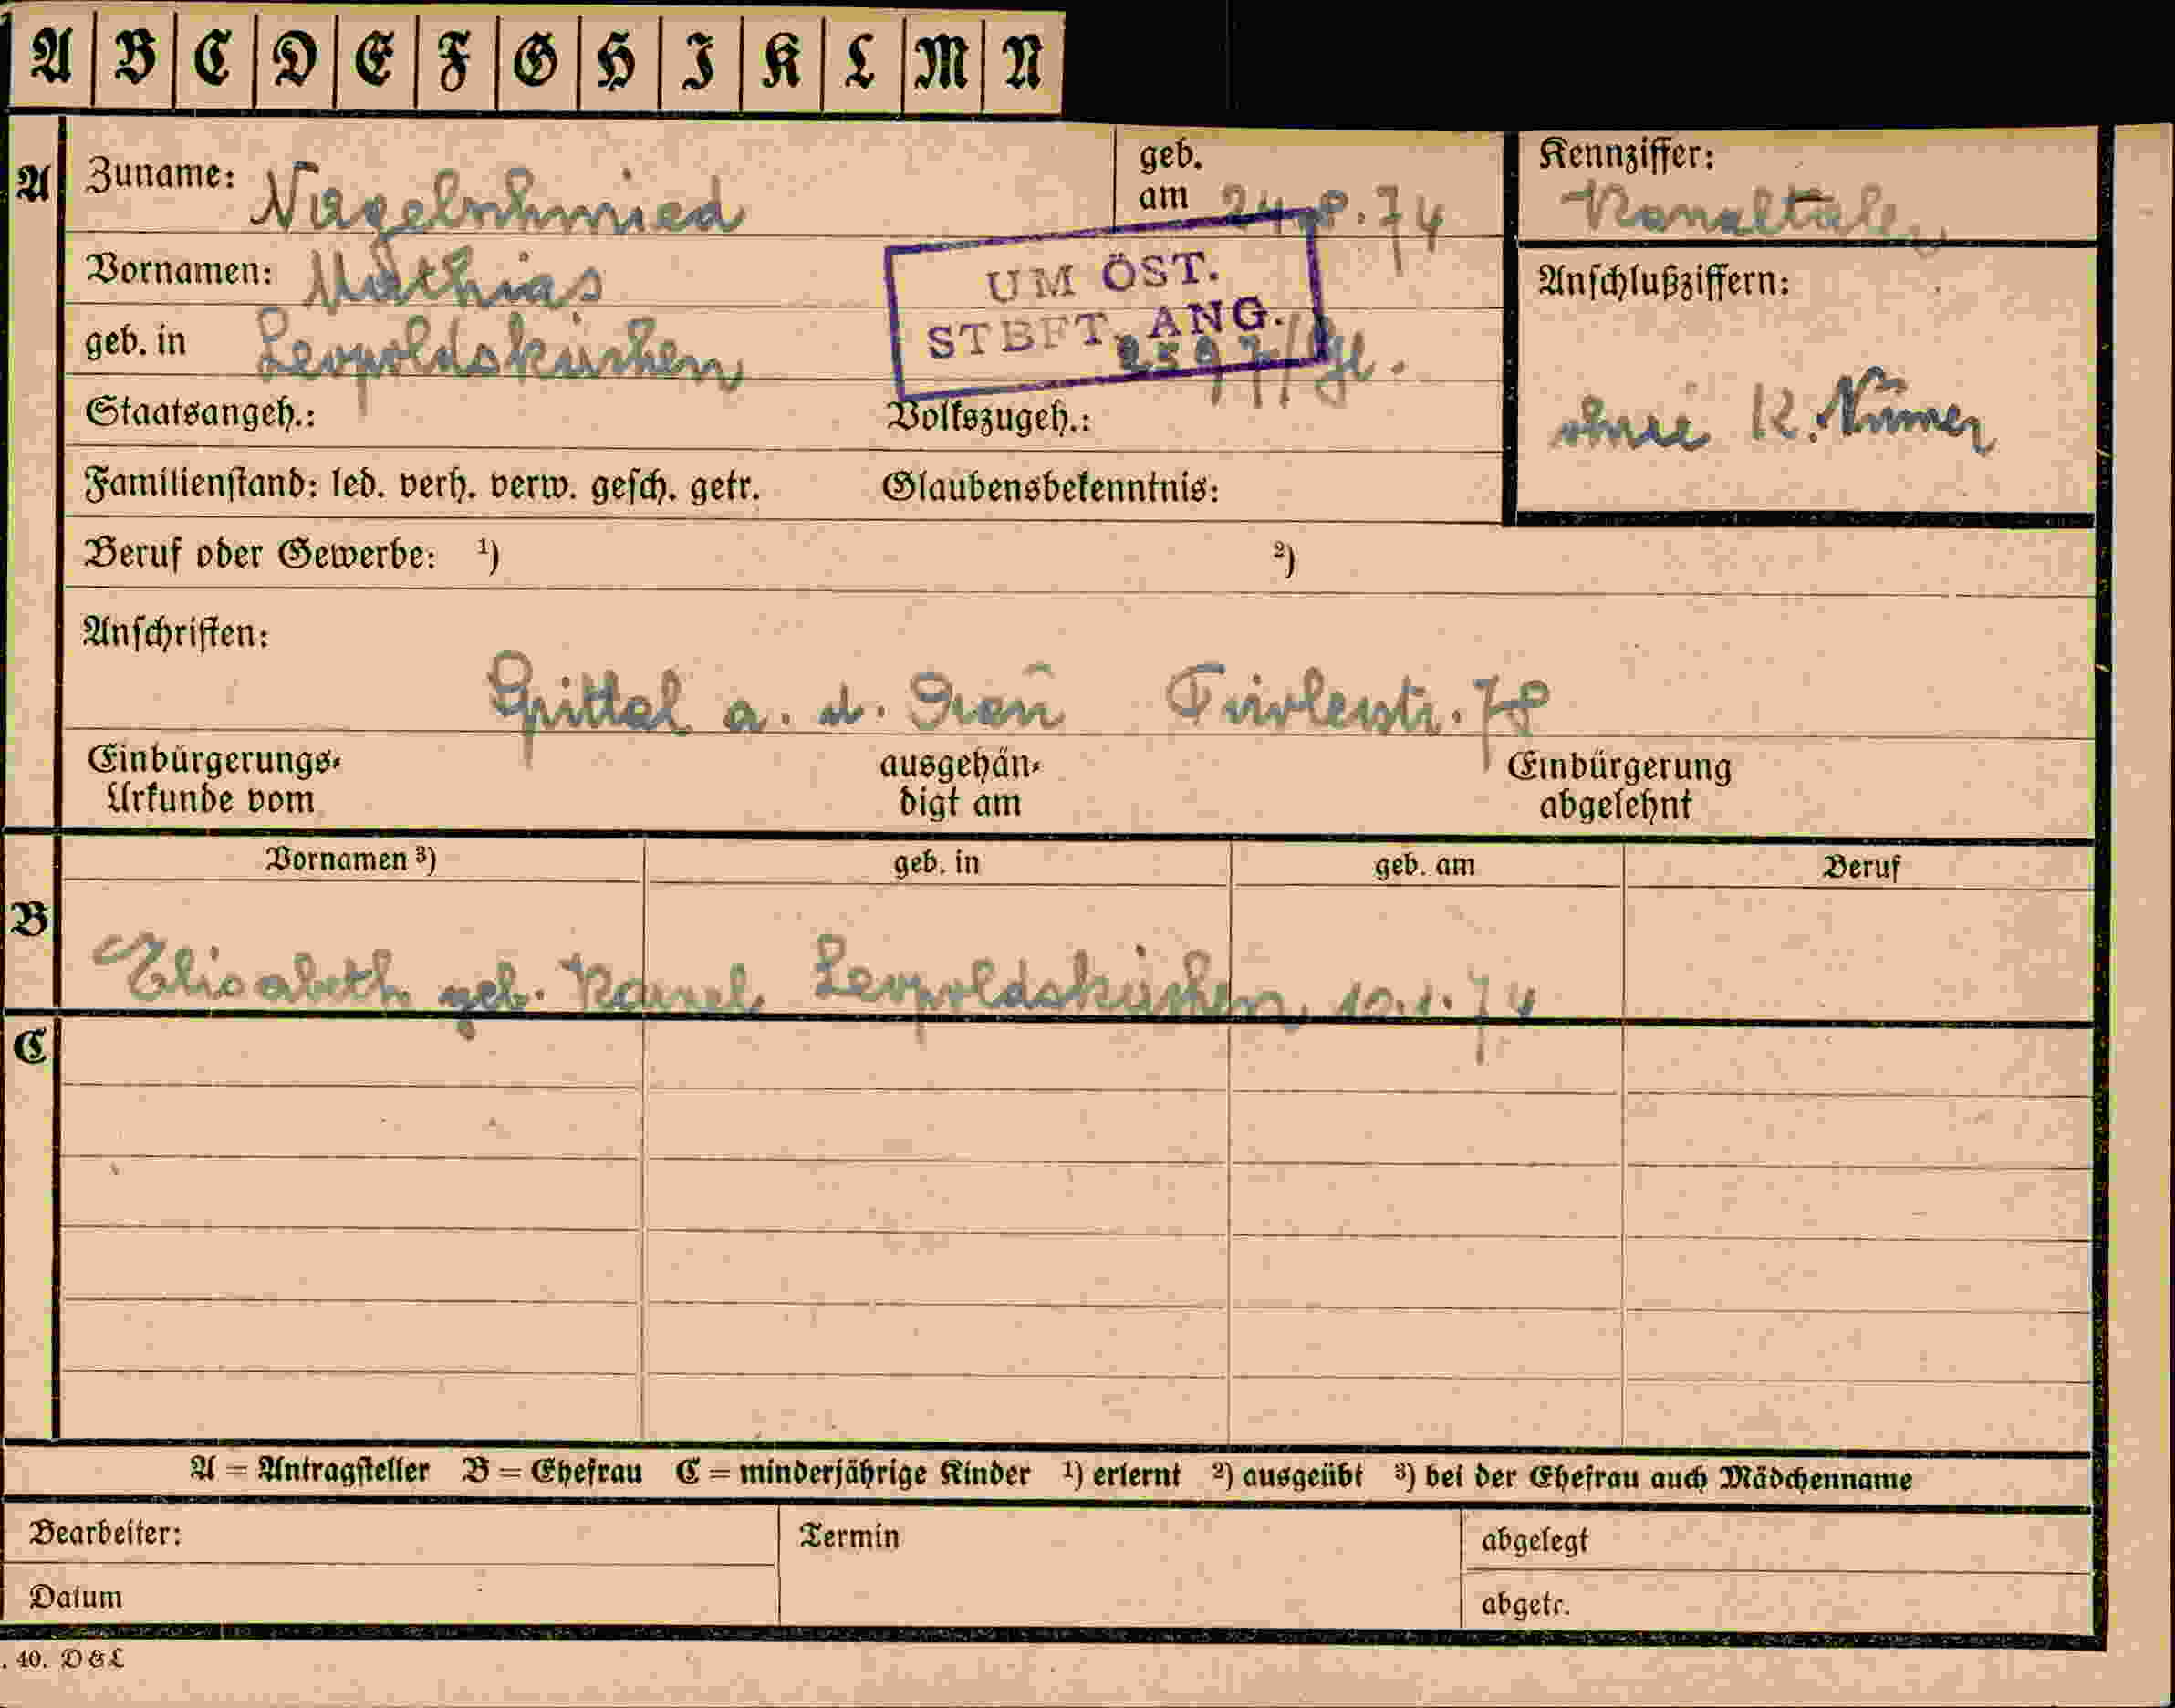 A B C D E F G H I K L M N
A Zuname: Nagelschmied geb. am 24.8.74 Kennziffer: Kanaltaler
Vornamen: Mathias
UM ÖST. STBFT. ANG.
geb. in Leopoldskirchen
Anschlußziffern: ohne K. Numer
Staatsangeh.: Volkszugeh.:
Familienstand: led. verh. verw. gesch. getr. Glaubensbekenntnis:
Beruf oder Gewerbe: ¹) ²)
Anschriften:
Spittal a. d. Drau Tirolerstr. 78
Einbürgerungs- Urkunde vom ausgehän- digt am Einbürgerung abgelehnt
Vornamen ³) geb. in geb. am Beruf
B Elisabeth geb. Leopoldskirchen 10.1.74
C
A = Antragsteller B = Ehefrau C = minderjährige Kinder ¹) erlernt ²) ausgeübt ³) bei der Ehefrau auch Mädchenname
Bearbeiter: Termin abgelegt
Datum abgetr.
. 40. D & L